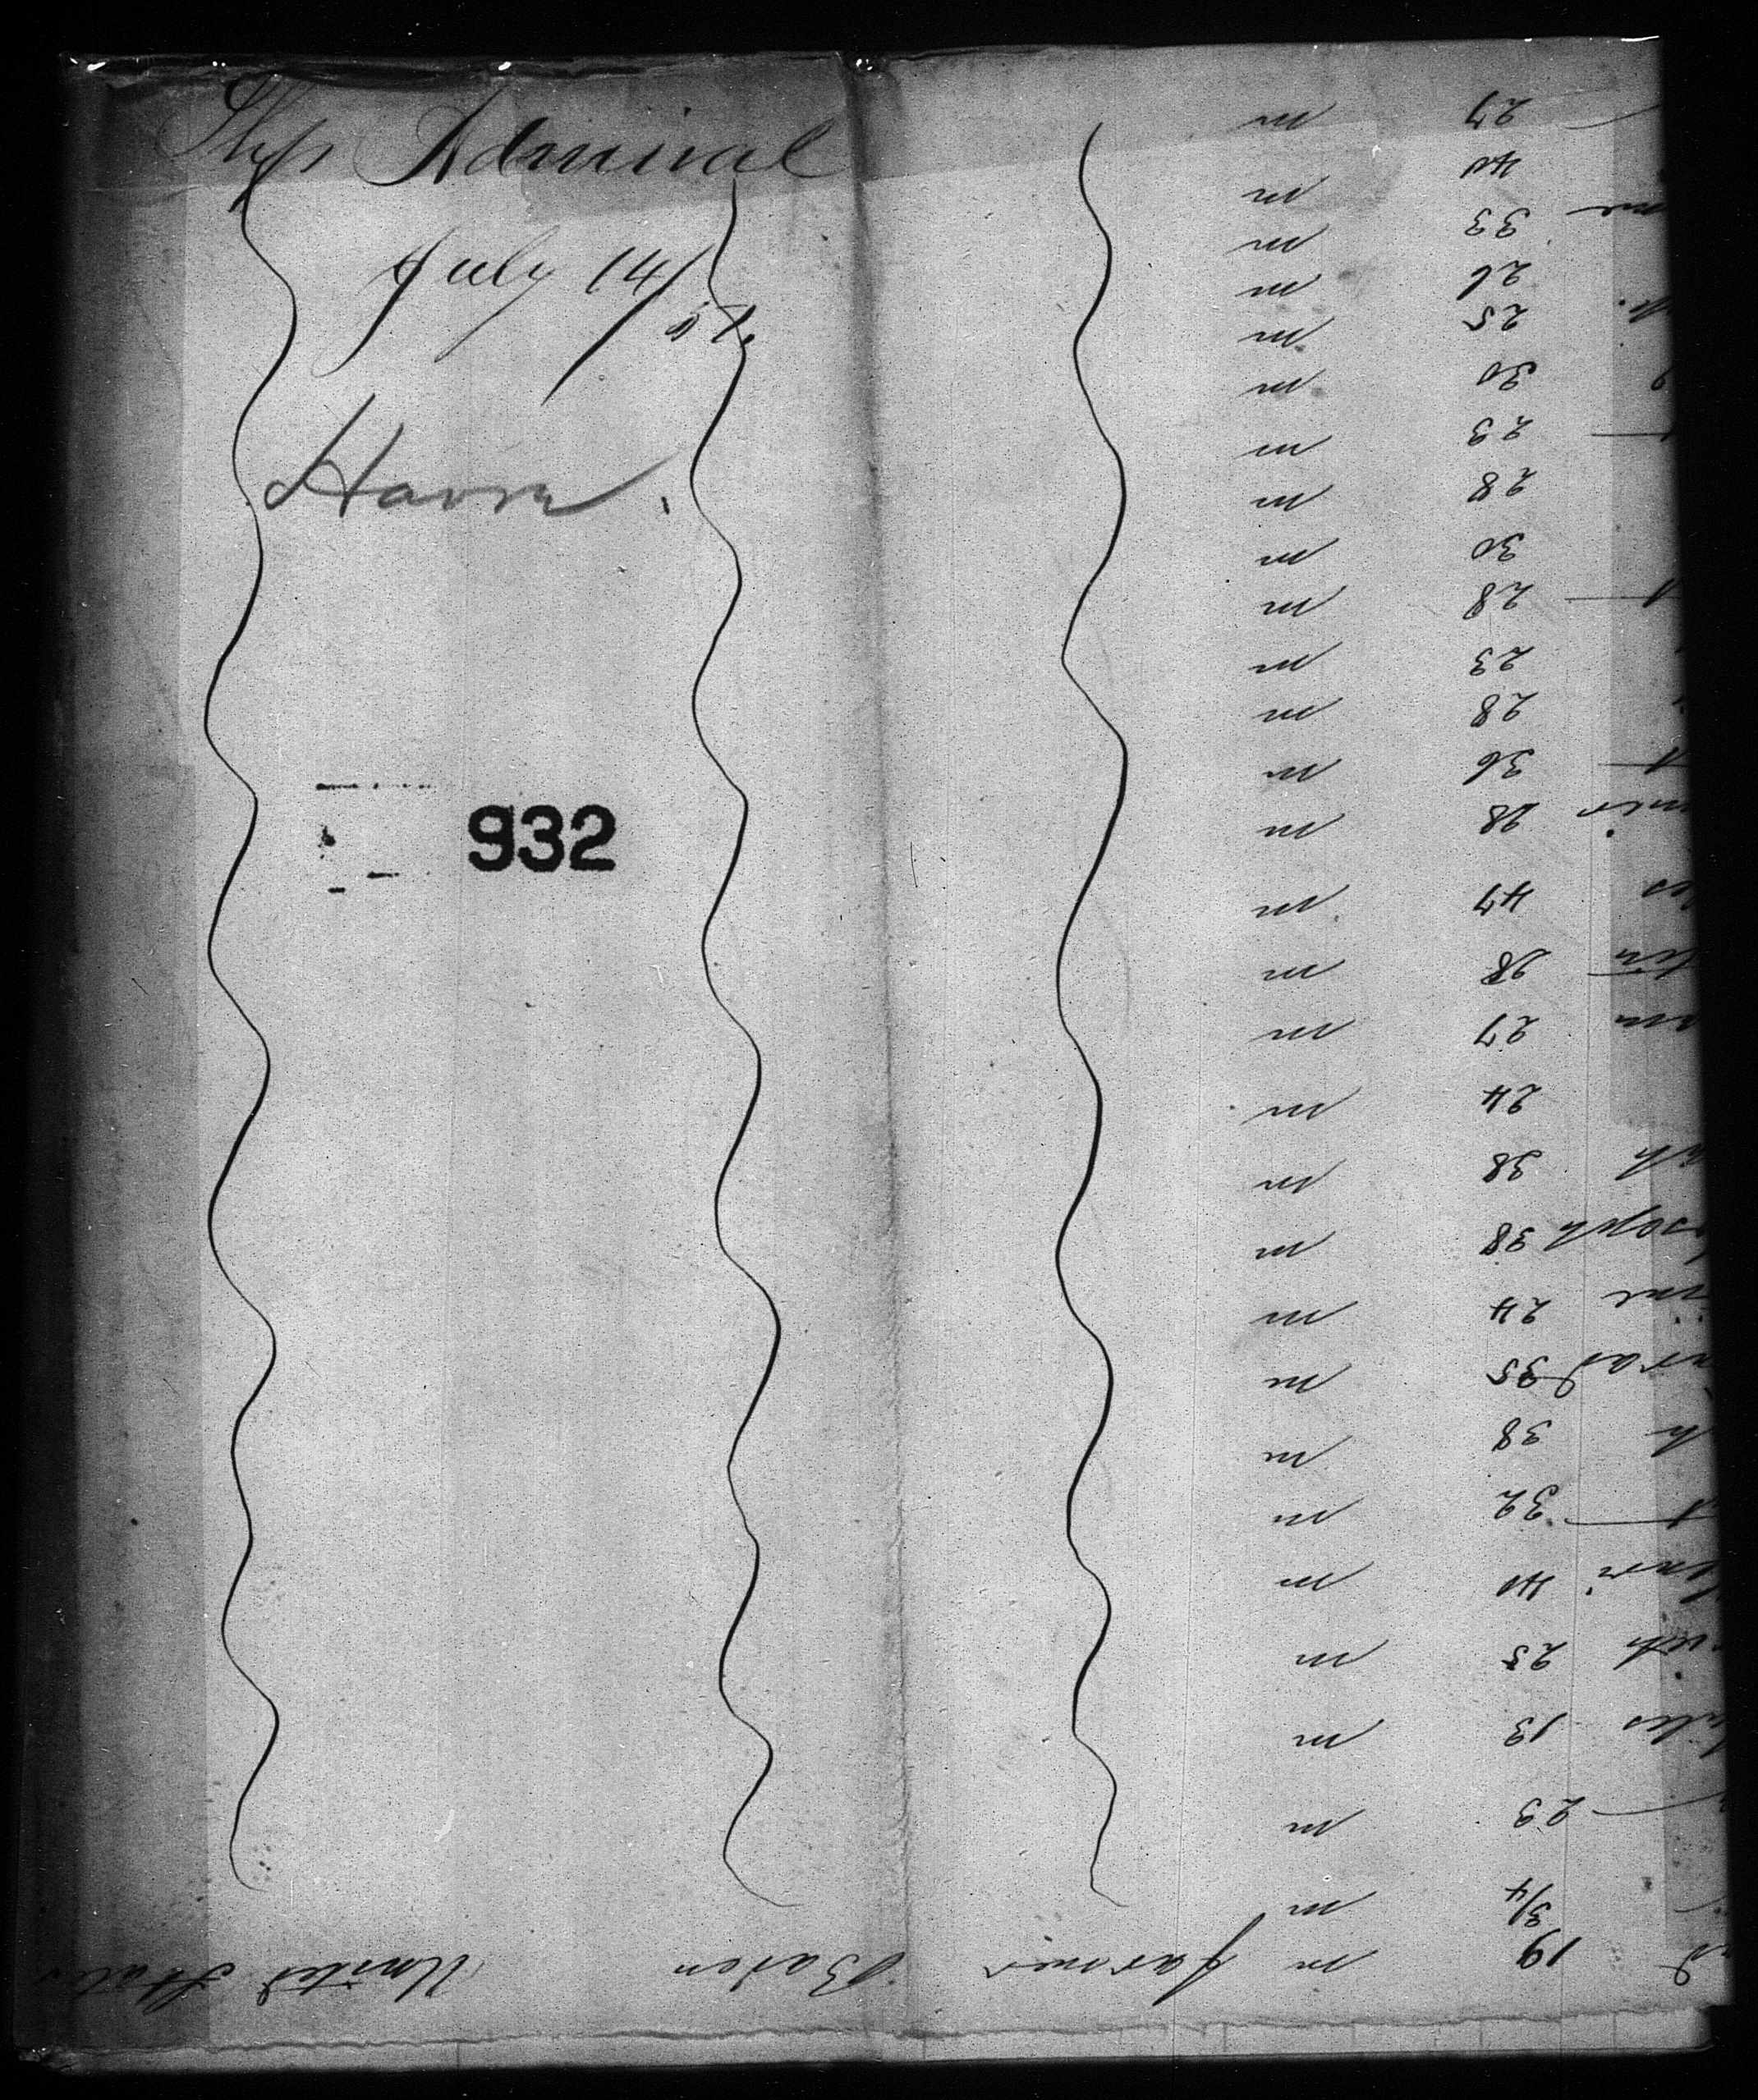 Ship Admiral
July 14/
Havre.
932
19 m farmer Baden United States
3/4 m
23 m
13 m
25 m
40 m
32 m
38 m
35 m
24 m
38 m
38 m
24 m
27 m
28 m
47 m
28 m
36 m
28 m
23 m
28 m
30 m
28 m
23 m
30 m
25 m
26 m
33 m
40 m
27 m